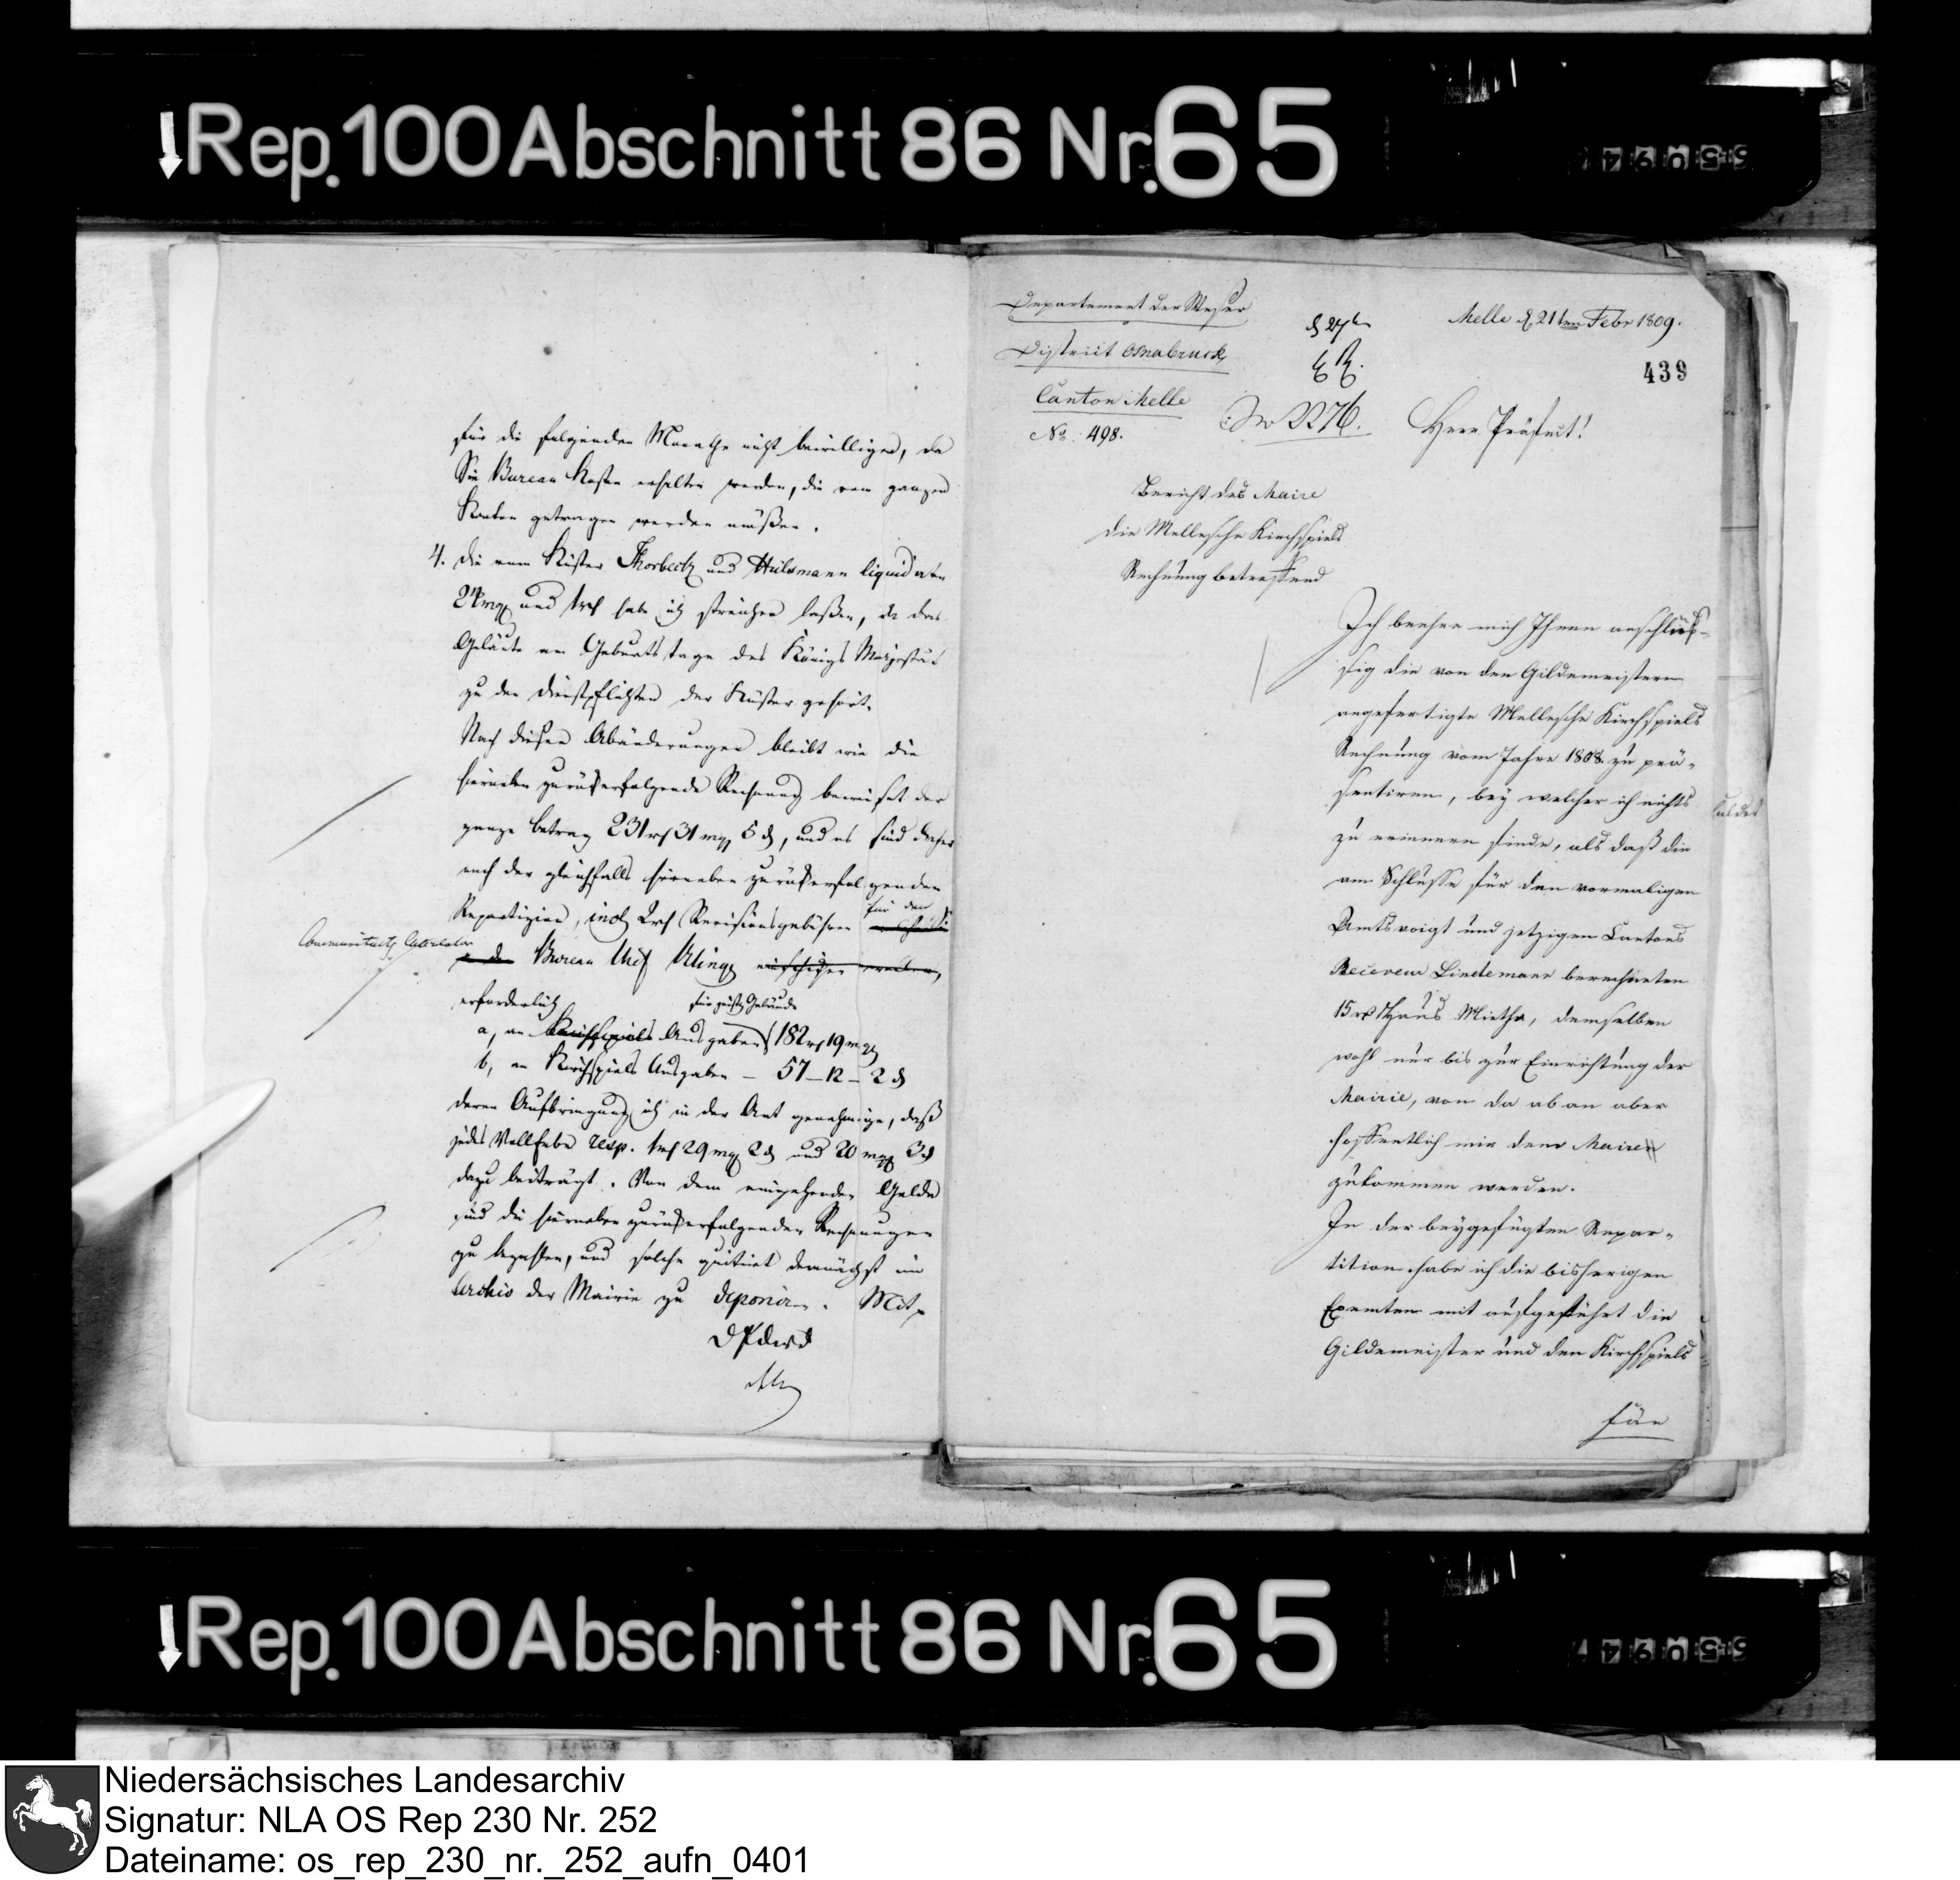 Rep. 100 Abschnitt 86 Nr. 65
für die folgenden Monathe nicht bewilligen, da
Sie Bureau Kosten erhalten werden, die vom ganzen
Kanton getragen werden müßen.
4. die vom Küster Thorbeck und Hülsmann liquidirten
und habe ich streichen laßen, da das
Geläute am Geburtstage des Königs Majestät
zu den Dienstpflichten der Küster gehört.
Nach diesen Abänderungen bleibt wie die
hierneben zurückerfolgende Rechnung beweiset der
ganze Betrag 231 rh 31 mgr 5 d, und es sind daher
nach der gleichfalls hierneben zurückerfolgenden
Repartizion, incl. 2 rh Revisionsgebühren für den
Communitäts Calculator
Bureau Chef
erforderlich
für geistl. Gebäude
a, an Ausgaben 182 rh 19 mgr
b, an Kirchspiels Ausgaben – 57 – 12 – 2 d
deren Aufbringung ich in der Art genehmige, daß
jedes Vollerbe resp. 1 rh 29 mgr 2 d und 20 mgr 3 d
dazu beiträgt. Von dem eingehenden Gelde
sind die hierneben zurückerfolgenden Rechnungen
zu bezahlen, und solche quitirt demnächst im
Archiv der Mairie zu deponiren. Mit
Departement der Weser
District Osnabruck
Canton Melle
No. 498.
Melle d 21ten Febr 1809.
439
Herr Präfect!
Bericht des Maire
die Mellesche Kirchspiels
Rechnung betreffend
Ich beehre mich Ihnen anschlüs-
sig die von den Gildemeistern
angefertigte Mellesche Kirchspiels
Rechnung vom Jahre 1808 zu prä-
sentiren, bey welcher ich nichts
zu erinnern finde, als daß die
am Schlusse für den vormaligen
Amtsvoigt und jetzigen Cantons
Receveur Lindemann berechneten
15 rh Haus Miethe, demselben
wohl nur bis zur Einrichtung der
Mairie, von da ab an aber
hoffentlich mir dem Maire
zukommen werden.
In der beygefügten Repar-
tition habe ich die bisherigen
Exemten mit aufgeführt die
Gildemeister und den Kirchspiels
Rep. 100 Abschnitt 86 Nr. 65
Niedersächsisches Landesarchiv
Signatur: NLA OS Rep 230 Nr. 252
Dateiname: os_rep_230_nr._252_aufn_0401